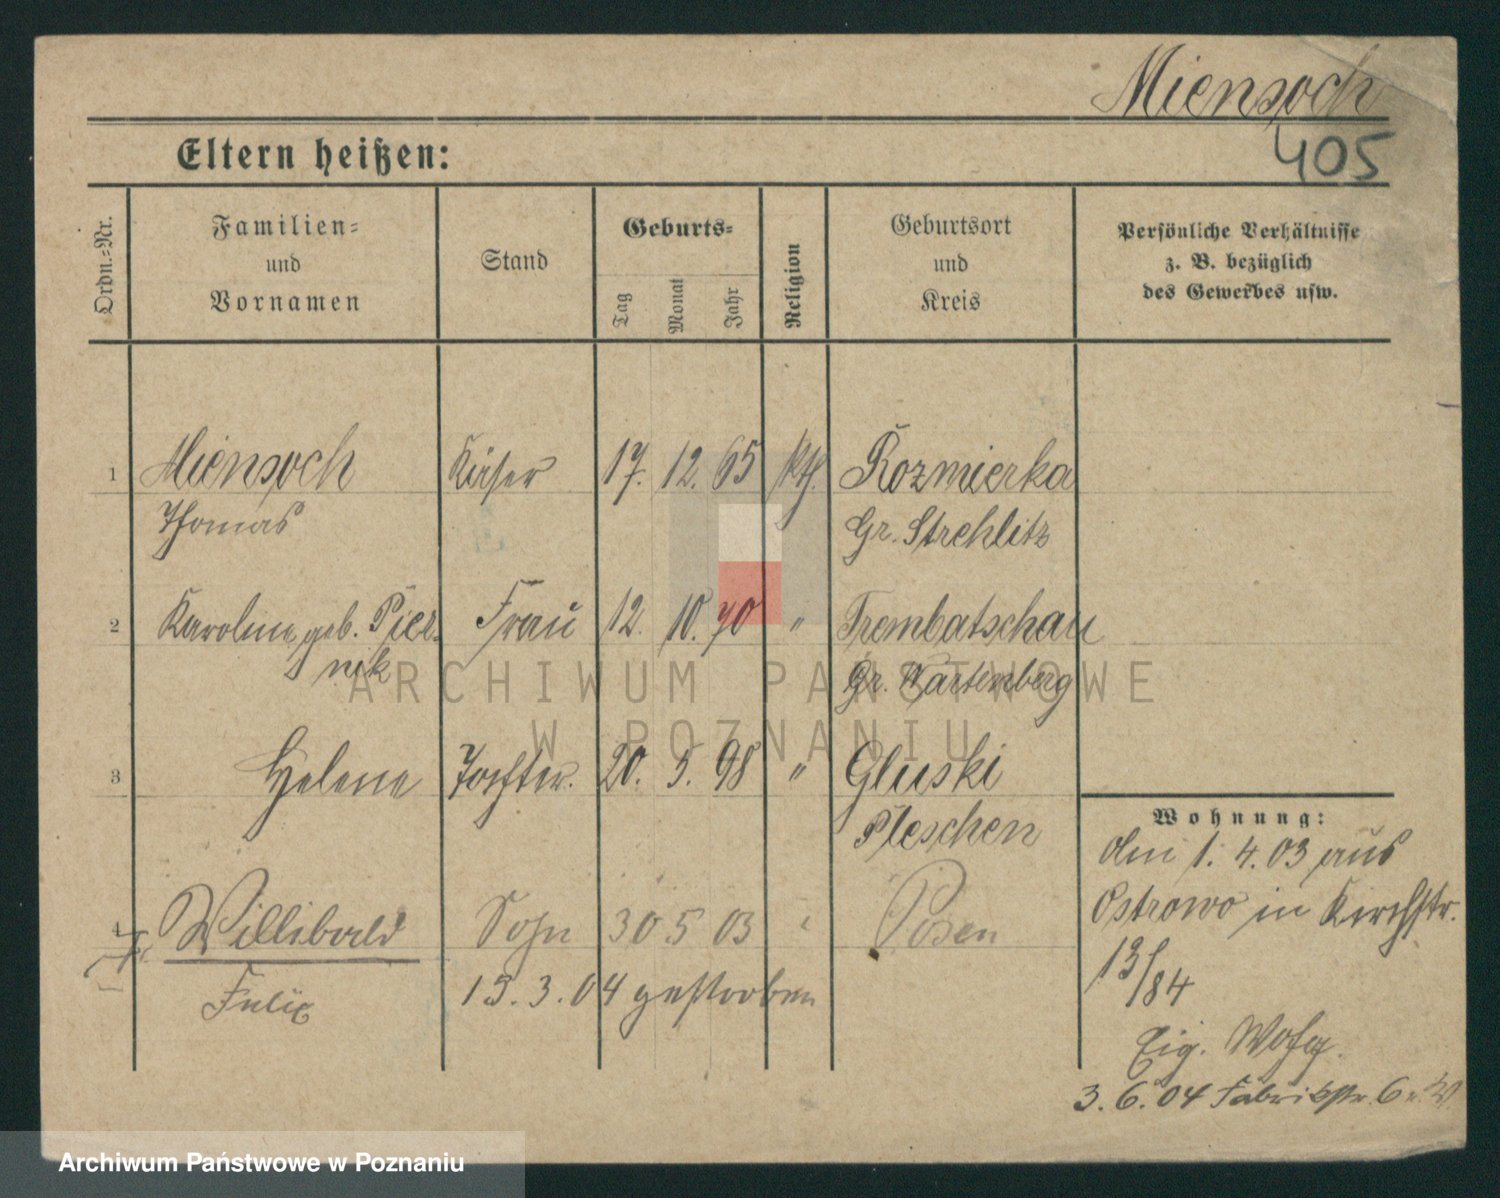 Miensoch
405
Eltern heißen:
Ordn.-Nr.
Familien-
und
Vornamen
Stand
Geburts-
Tag
Monat
Jahr
Religion
Geburtsort
und
Kreis
Persönliche Verhältnisse
z. B. bezüglich
des Gewerbes usw.
1 Miensoch 17. 12. 65 kth. Rozmierka
Thomas Gr. Strehlitz
2 Karoline geb. Pier- Frau 12. 10. 70 " Trembatschau
nik Gr. Wartenberg
3 Helene Tochter. 20. 5. 98 " Gluski
Pleschen
4 Willibald Sohn 30 5 03 " Posen
Felix 15. 3. 04 gestorben
Wohnung:
Am 1. 4. 03 aus
Ostrowo in Kirchstr.
13/84
Eig. Wohg.
3. 6. 04 Fabrikstr. 6
ARCHIWUM PAŃSTWOWE
W POZNANIU
Archiwum Państwowe w Poznaniu